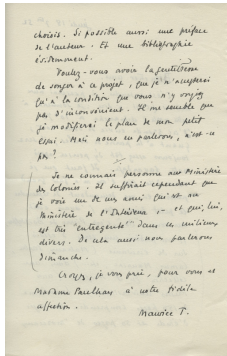 choisis. Si possible aussi une préface
de l'auteur. Et une bibliographie
évidemment.
Voulez-vous avoir la gentillesse
de songer à ce projet, que je n'accepterai
qu'à la condition que vous n'y voyiez
pas d'inconvénient. Il me semble que
je modifierai le plan de mon petit
essai. Mais nous en parlerons, n'est-ce
pas ?
Je ne connais personne au Ministère
des Colonies. Il suffirait cependant que
je voie un de mes amis qui est au
Ministère de l'Intérieur et qui, lui,
est très "entregents" dans les milieux
divers. De cela aussi nous parlerons
dimanche.
Croyez, je vous prie, pour vous et
Madame Paulhan à notre fidèle
affection.
Maurice T.